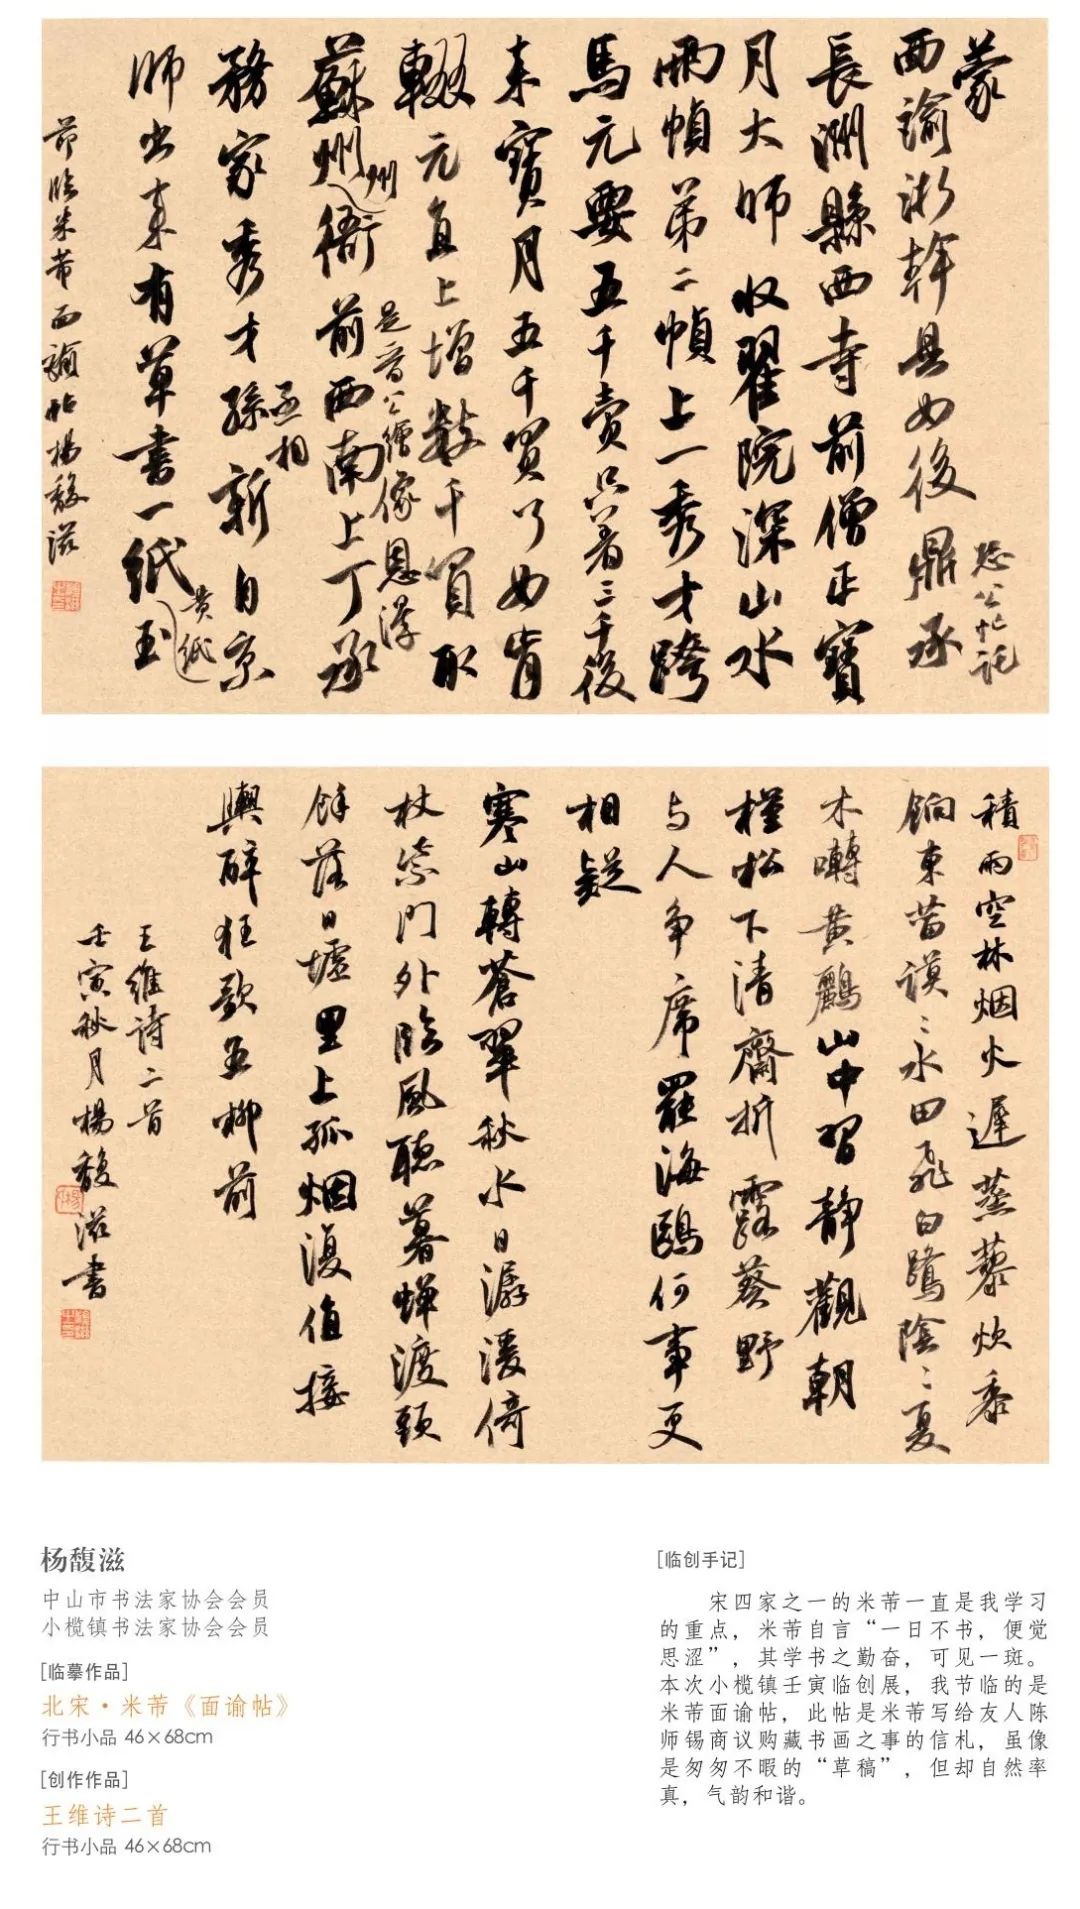 蒙
面谕浙幹具如後鼎承
恐公忙託
長洲縣西寺前僧正寶
月大師收翟院深山水
兩幀第二幀上一秀才跨
馬元要五千賣只著三千後
来寶月五千買了如肯
輟元直上增數千買取
是音公繪像恩淳
蘇州衙前西南上丁承
州
務家秀才孫新自京
丞相
師出来有草書一紙
黄紙
節临米芾面諭帖楊馥滋
積雨空林烟火遲蒸藜炊黍
餉東菑漠〻水田飛白鷺陰〻夏
木囀黄鸝山中習静觀朝
槿松下清齋折露葵野
与人争席罷海鷗何事更
相疑
寒山轉蒼翠秋水日潺湲倚
杖柴門外临風聽暮蝉渡頭
餘落日墟里上孤烟復值接
輿醉狂歌五柳前
王維诗二首
壬寅秋月楊馥滋書
杨馥滋
中山市书法家协会会员
小榄镇书法家协会会员
[临摹作品]
北宋·米芾《面谕帖》
行书小品 46×68cm
[创作作品]
王维诗二首
行书小品 46×68cm
[临创手记]
宋四家之一的米芾一直是我学习
的重点，米芾自言“一日不书，便觉
思涩”，其学书之勤奋，可见一斑。
本次小榄镇壬寅临创展，我节临的是
米芾面谕帖，此帖是米芾写给友人陈
师锡商议购藏书画之事的信札，虽像
是匆匆不暇的“草稿”，但却自然率
真，气韵和谐。